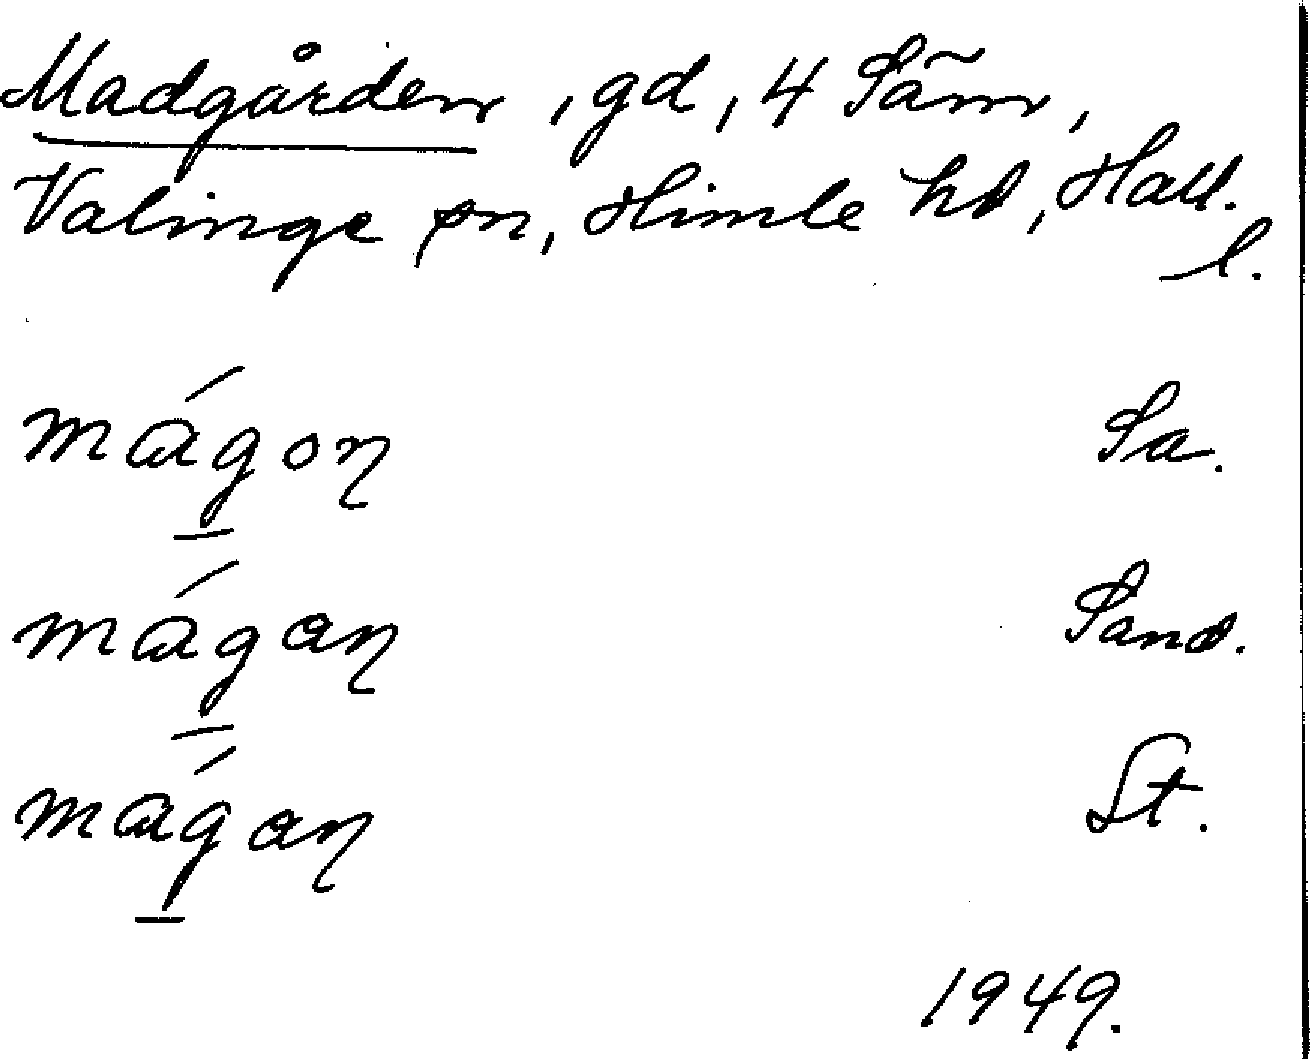 Madgården, gd, 4 Säm,
Valinge sn, Himle hd, Hall.
l.
mágoŋ Sa.
mágaŋ Sand.
mágaŋ St.
1949.